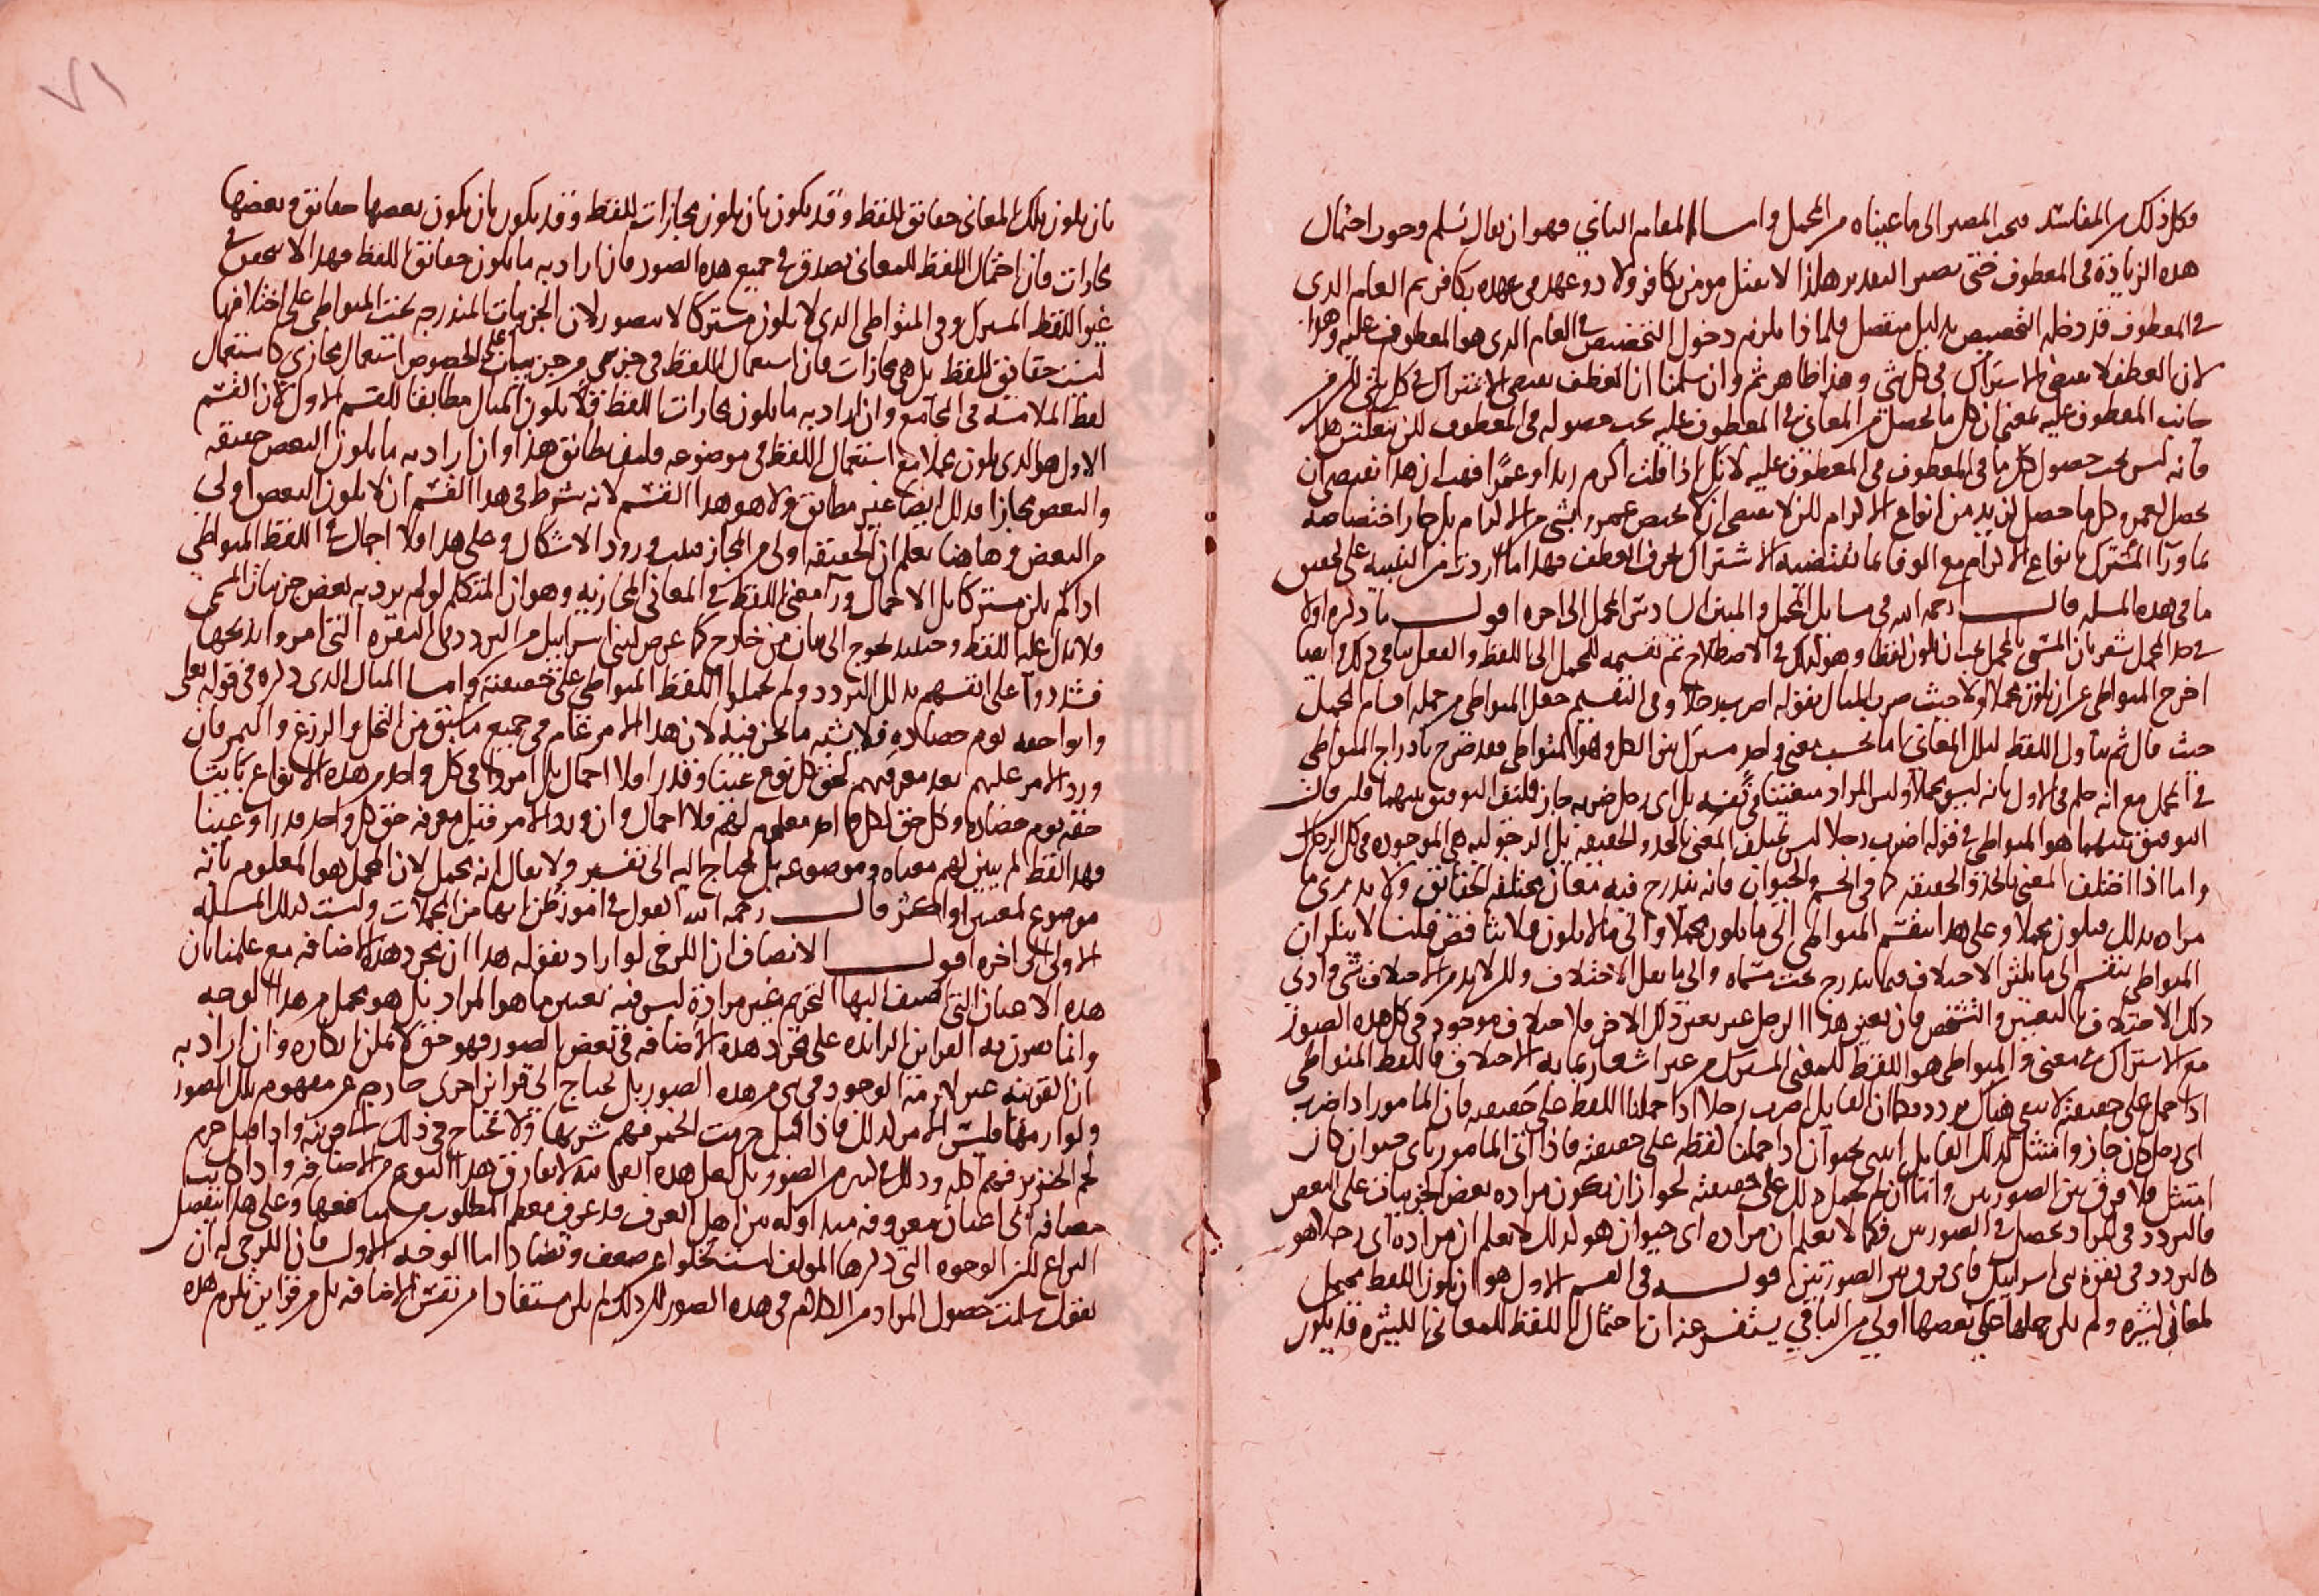 وكل ذلك من المفاسد فيجب المصير الى ما عيناه من المجمل واما المقام الثاني فهو ان يقال نسلم وجوب احتمال
هذه الزيادة في المعطوف حتى يصير التقدير هكذا لا يقتل مومن بكافر ولا ذو عهد في عهده بكافر ثم العام الذي
في المعطوف قد دخله التخصيص بدليل منفصل فلماذا يلزم دخول التخصيص في العام الذي هو المعطوف عليه وهذا
لان العطف لا يقتضي الاشتراك في كل شي وهذا ظاهر ثم وان سلمنا ان العطف يقتضي الاشتراك في كل شي لكن من
جانب المعطوف عليه بمعنى ان كل ما يحصل من المعاني في المعطوف عليه يجب حصوله في المعطوف لكن
فانه ليس يجب حصول كل ما في المعطوف في المعطوف عليه لانك اذا قلت اكرم زيدا وعمرا فهب ان هذا يقتضي ان
يحصل لعمرو كل ما حصل لزيد من انواع الاكرام لكن لا يقتضي ان لا يختص عمرو بشي من الاكرام بل جاز اختصاصه
بما ورآ المشترك بانواع الاكرام مع الوفا بما يقتضيه الاشتراك بحرف العطف فهذا ما اردت من التنبيه على
ما في هذه المسله قال رحمه الله في مسايل المجمل والمبين السادس المجمل الى اخره اقول ما ذكره اولا
في حد المجمل يشعر بان المسمى بالمجمل يجب ان يكون لفظا وهو كذلك في الاصطلاح ثم تقسيمه للمجمل الى اللفظ والفعل ينافي ذلك وايضا
اخرج المتواطي عن ان يكون مجملا اولا حيث ضرب المثال بقوله اضرب رجلا وفي التقسيم جعل المتواطي من جمله اقسام المجمل
حيث قال ثم تناول اللفظ لتلك المعاني اما بحسب معنى واحد مشترك بين الكل وهو المتواطي فقد صرح بادراج المتواطي
في المجمل مع انه حكم في الاول بانه ليس بمجمل وليس المراد معينا في نفسه بل اي رجل ضربه جاز فكيف التوفيق بينهما فلين قال
التوفيق بينهما هو المتواطي في قوله اضرب رجلا ليس يختلف المعنى بالحد والحقيقه بل الرجوليه هي الموجوده في كل الرجال
واما اذا اختلف المعنى بالحد والحقيقه كما في الجسم والحيوان فانه يندرج فيه معان مختلفه الحقائق ولا يدرى ما
مراده بذلك فيكون مجملا وعلى هذا ينقسم المتواطي الى ما يكون مجملا والى ما لا يكون فلا تناقض قلنا لا ننكر ان
المتواطي ينقسم الى ما يكثر الاختلاف فيما يندرج تحت مسماه والى ما يقل الاختلاف ولكن لا بد من الاختلاف
ذلك الاختلاف بالتعيين والتشخص فان تعين هذا الرجل غير تعين ذلك الاخر فلا خلاف موجود في كل هذه الصور
مع الاشتراك في معنى والمتواطي هو اللفظ للمعنى المشترك من غير اشعار بما به الاختلاف فاللفظ المتواطي
اذا حمل على حقيقته لا يبقى هناك تردد فكما ان القايل اضرب رجلا اذا حملنا اللفظ على حقيقته فان المامور اذا ضرب
اي رجل كان جاز وامتثل كذلك القايل ايتني بحيوان اذا حملنا لفظه على حقيقته فاذا اتى المامور باي حيوان كان
امتثل فلا فرق بين الصورتين واما ان لم يحمل ذلك على حقيقته لجواز ان يكون مراده بعض الجزييات على البعض
فالتردد في المراد يحصل في الصورتين فكما لا يعلم ان مراده اي حيوان هو كذلك لا يعلم ان مراده اي رجل هو
كالتردد في بقرة بني اسراييل فاي فرق بين الصورتين قوله في القسم الاول هو ان يكون اللفظ يحتمل
لمعاني كثيره ولم يكن حملها على بعضها اولى من الباقي يستفسر عنه ان احتمال اللفظ للمعاني الكثيره قد يكون
٧١
بان يكون تلك المعاني حقائق للفظ وقد يكون بان يكون مجازات للفظ وقد يكون بان يكون بعضها حقائق وبعضها
مجازات فان احتمال اللفظ للمعاني يصدق في جميع هذه الصور فان اراد به ما يكون حقائق اللفظ فهذا لا يتحقق في
غير اللفظ المشترك وفي المتواطي الذي لا يكون مشتركا لا يتصور لان الجزييات المندرجه تحت المتواطي على اختلافها
ليست حقائق للفظ بل هي مجازات فان استعمال اللفظ في جزيي من جزيياته على الخصوص استعمال مجازي كاستعمال
لفظ الملامسه في الجامع وان اراد به ما يكون مجازات اللفظ فلا يكون المثال مطابقا للقسم الاول لان القسم
الاول هو الذي يكون مجملا مع استعمال اللفظ في موضوعه فكيف يطابق هذا وان اراد به ما يكون البعض حقيقه
والبعض مجازا فذلك ايضا غير مطابق ولا هو هذا القسم لانه شرط في هذا القسم ان لا يكون البعض اولى
من البعض وها هنا يعلم ان الحقيقه اولى من المجاز فثبت ورود الاشكال وعلى هذا فلا اجمال في اللفظ المتواطي
اذا لم يكن مشتركا بل الاجمال ورآ معنى اللفظ في المعاني المجازيه وهو ان المتكلم لو لم يرد به بعض جزييات المسمى
ولا يدل عليه اللفظ وحينيذ يحوج الى بيان من خارج كما عرض لبني اسراييل من التردد في البقره التي امروا بذبحها
فشددوا على انفسهم بذلك التردد ولم يحملوا اللفظ المتواطي على حقيقته واما المثال الذي ذكره في قوله تعالى
واتوا حقه يوم حصاده فلا يشبه ما نحن فيه لان هذا الامر عام في جميع ما سبق من النخل والزرع والثمر فان
ورد الامر عليهم بعد معرفتهم بحق كل نوع عينا وقدرا فلا اجمال بل امروا في كل واحد من هذه الانواع بايتا
حقه يوم حصاده وكل حق لكل واحد معلوم لهم فلا اجمال وان ورد الامر قبل معرفه حق كل واحد قدرا وعينا
فهذا لفظ لم يبين لهم معناه وموضوعه بل يحتاج اليه الى تفسير ولا يقال انه مجمل لان المجمل هو المعلوم بانه
موضوع لمعنيين او اكثر قال رحمه الله القول في امور ظن انها من المجملات وليست كذلك المسله
الاولى الى اخره اقول الانصاف ان الكرخي لو اراد بقوله هذا ان مجرد هذه الاضافه مع علمنا بان
هذه الاعيان التي اضيف اليها التحريم غير مرادة ليس فيه تعيين ما هو المراد بل هو مجمل من هذا الوجه
وانما يعرف به القراين الزايده على مجرد هذه الاضافه في بعض الصور فهو حق لا يمكن انكاره وان اراد به
ان القرينه غير لازمة الوجود في شي من هذه الصور بل يحتاج الى قراين اخرى خارجه عن مفهوم تلك الصور
ولوازمها فليس الامر كذلك فاذا قيل حرمت الخمر فهم شربها ولا يحتاج في ذلك الى قرينه واذا قيل حرم
لحم الخنزير فهم اكله وذلك في كثير من الصور بل لعل هذه القراين لا تفارق هذا النوع من الاضافه واذا كانت
مضافه الى اعيان معروفه متداوله بين اهل العرف قد عرف معظم المطلوب من منافعها وعلى هذا التفصيل
النزاع لكن الوجوه التي ذكرها المولف ليست تخلوا عن ضعف وفساد اما الوجه الاول فان الكرخي له ان
يقول سلمت حصول المراد من الكلام في هذه الصور لكن ذلك لم يكن مستفادا من نفس الاضافه بل من قراين تلزم هذه